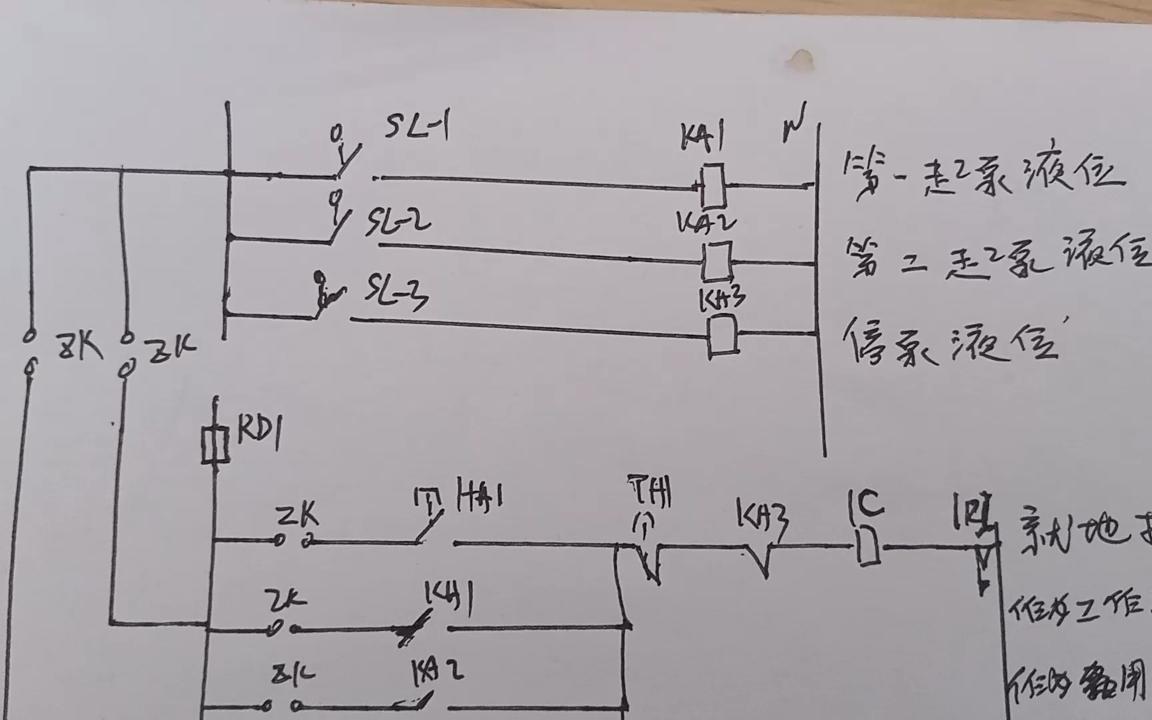 SL-1
KA1
N
第一起泵液位
SL-2
KA2
第二起泵液位
SL-3
KA3
停泵液位
ZK
ZK
RD1
ZK
HA1
TA1
KA3
1C
1RJ
就地
ZK
KA1
作为工作
ZK
KA2
作为备用